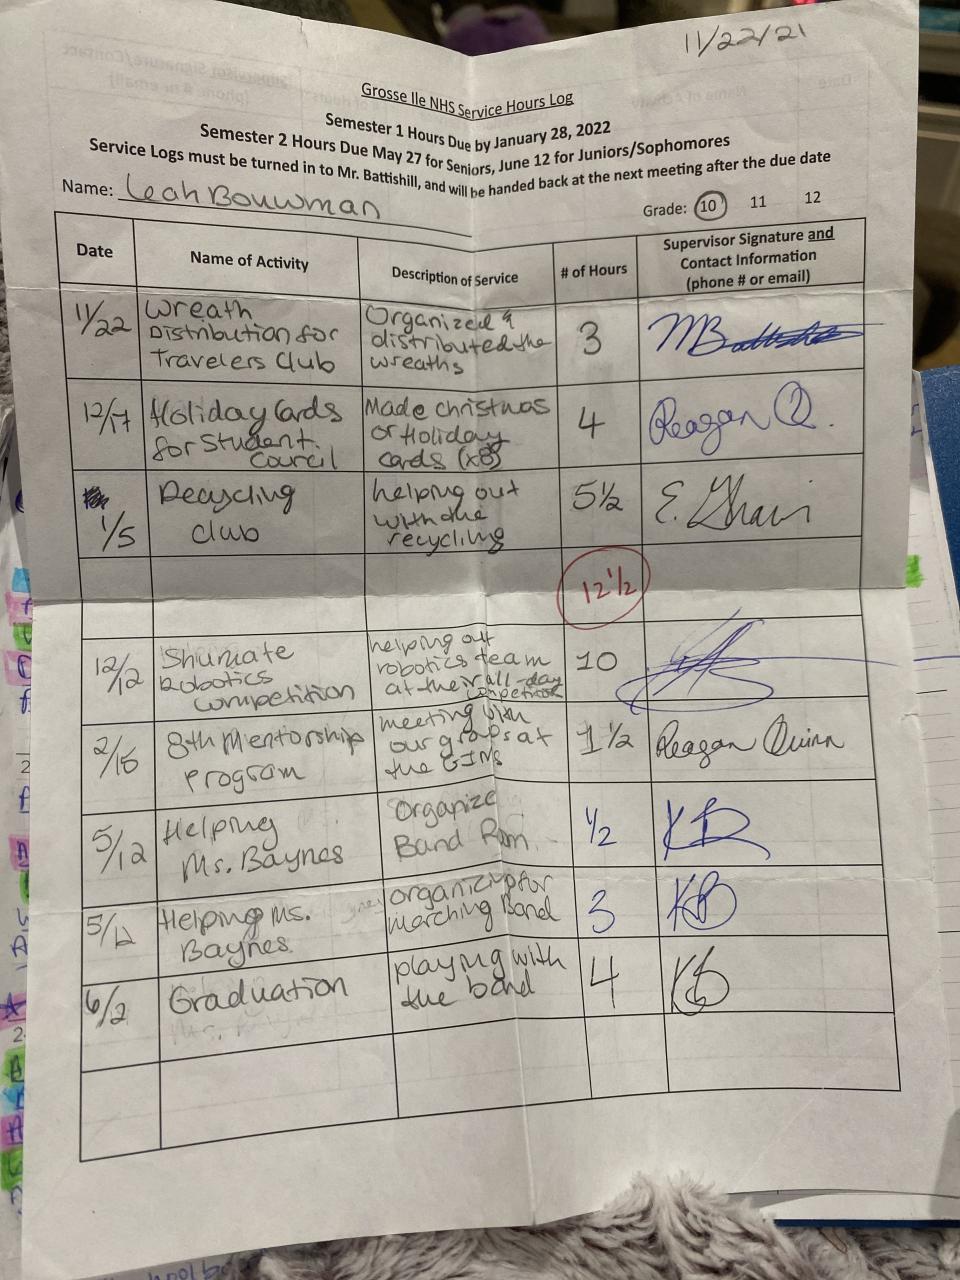 11/22/21
Grosse Ile NHS Service Hours Log
Semester 1 Hours Due by January 28, 2022
Semester 2 Hours Due May 27 for Seniors, June 12 for Juniors/Sophomores
Service Logs must be turned in to Mr. Battishill, and will be handed back at the next meeting after the due date
Name: Leah Bouwman
Grade: 10 11 12
Date
Name of Activity
Description of Service
# of Hours
Supervisor Signature and
Contact Information
(phone # or email)
11/22
Wreath
Distribution for
Travelers Club
Organized &
distributed the
wreaths
3
MB
12/17
Holiday Cards
for Student
Council
Made christmas
or Holiday
cards (x8)
4
Reagan Q.
1/5
Recycling
club
helping out
with the
recycling
5 1/2
E.
12 1/2
12/12
Shumate
Robotics
competition
helping out
robotics team
at their all-day
competition
10
2/15
8th Mentorship
program
meeting with
our groups at
the GIMS
1 1/2
Reagan Quinn
5/12
Helping
Ms. Baynes
Organize
Band Rom
1/2
KB
5/12
Helping Ms.
Baynes
organizing for
Marching Band
3
KB
6/2
Graduation
playing with
the band
4
KB